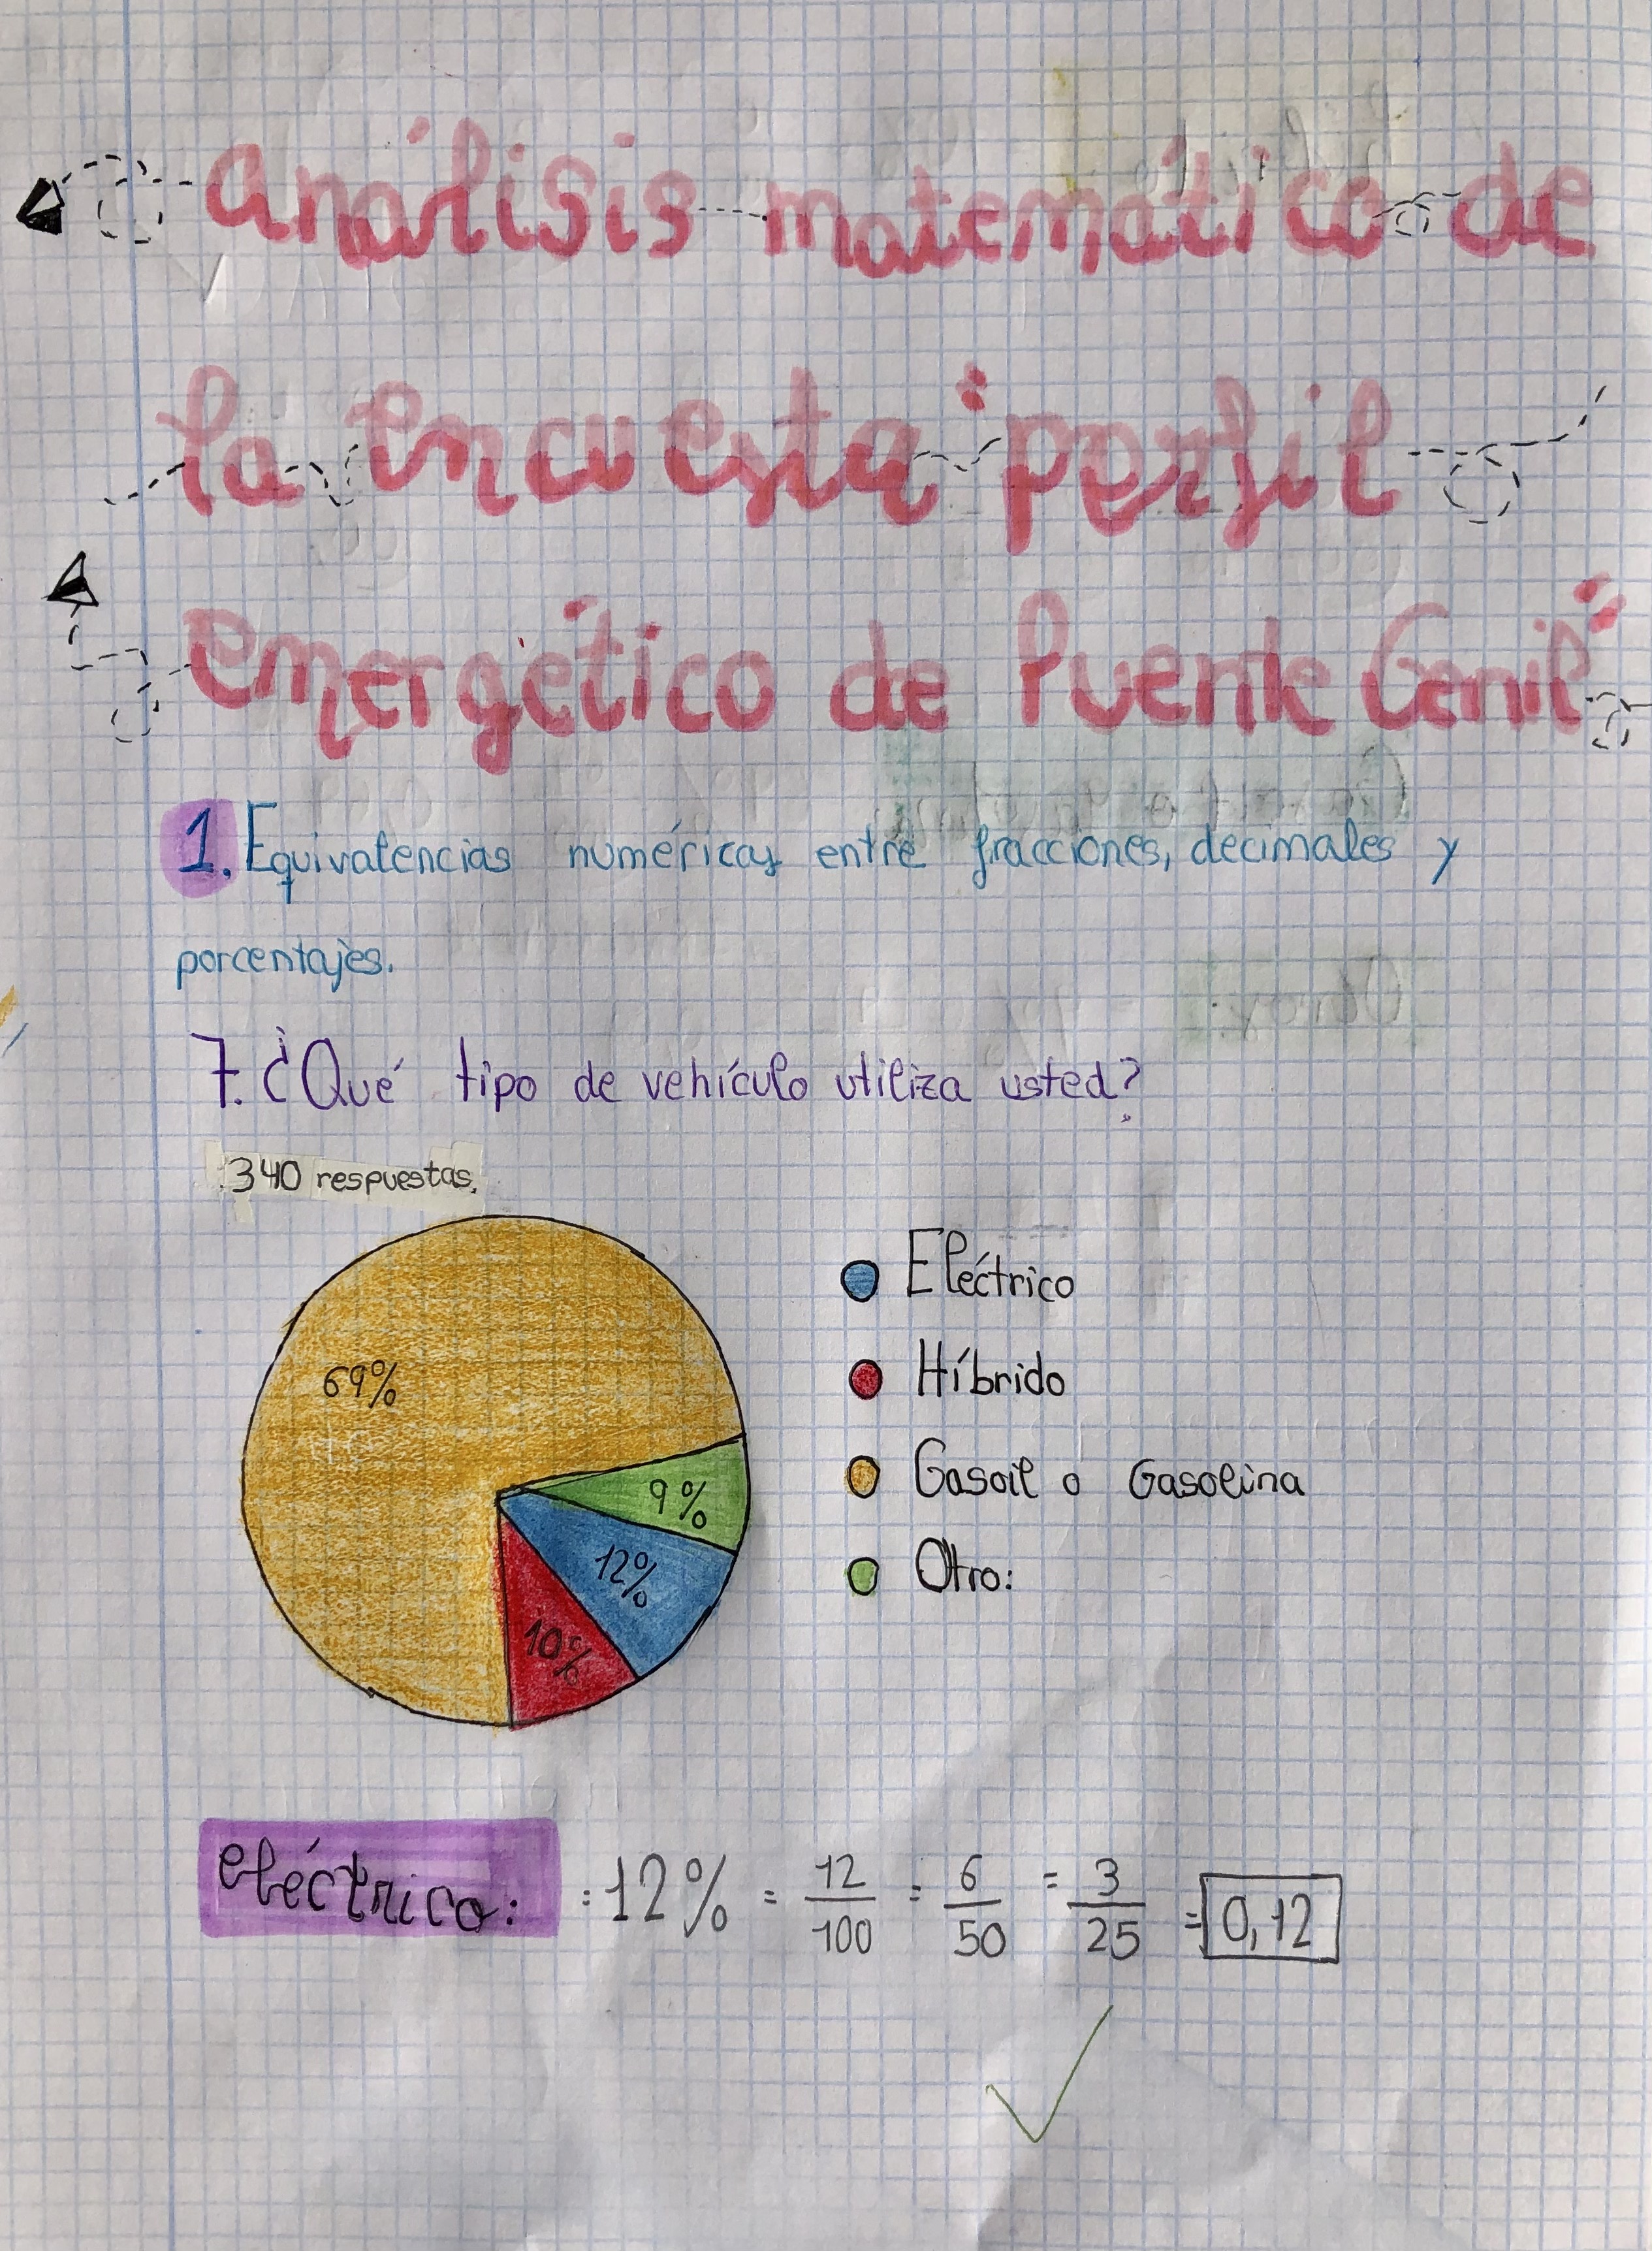 análisis matemático de
la encuesta "perfil
energético de Puente Genil"
1. Equivalencias numéricas entre fracciones, decimales y
porcentajes.
7. ¿Qué tipo de vehículo utiliza usted?
340 respuestas.
Eléctrico
Híbrido
Gasoil o Gasolina
Otro:
69%
9%
12%
10%
eléctrico: = 12% = 12/100 = 6/50 = 3/25 = 0,12